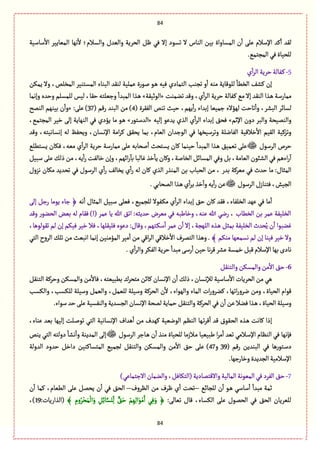 84
لقد أكد الإسلام على أن المساواة بين الناس لا تسود إلا في ظل الحرية والعدل والسلام؛ لأنها المعايير الأساسية
للحياة في المجتمع.
5-كفالة حرية الرأي
إن كشف الخطأ للوقاية منه أو تجنب التمادي فيه هو صورة عملية لنقد البناء المستنير المخلص، ولا يمكن
ممارسة هذا النقد إلا مع كفالة حرية الرأي، وقد تضمنت «الوثيقة» هذا المبدأ وجعلته حقا، ليس للمسلم وحده وإنما
لسائر البشر، وأتاحت لهؤلاء جميعا إبداء رأيهم، حيث تنص الفقرة (4) من البند رقم (37) على: «وأن بينهم النصح
والنصيحة والبر دون الإثم»، فحق إبداء الرأي الذي يدعو إليه «الدستور» هو ما يؤدي في النهاية إلى خير المجتمع،
وتزكية القيم الأخلاقية الفاضلة وترسيخها في الوجدان العام، بما يحقق كرامة الإنسان، ويحفظ له إنسانيته، وقد
حرص الرسول ﷺ على تعميق هذا المبدأ حينما كان يستحث أصحابه على ممارسة حرية الرأي معه، فكان يستطلع
آراءهم في الشئون العامة، بل وفي المسائل الخاصة، وكان يأخذ غالبا بآرائهم، وإن خالفت رأيه، من ذلك على سبيل
المثال: ما حدث في معركة بدر، من الحباب بن المنذر الذي كان له رأي يخالف رأي الرسول في تحديد مكان نزول
الجيش، فتنازل الرسول ﷺ عن رأيه وأخذ برأي هذا الصحابي.
أما في عهد الخلفاء، فقد كان حق إبداء الرأي مكفولا للجميع، فعلى سبيل المثال أنه ﴿ جاء يوما رجل إلى
الخليفة عمر بن الخطاب ـ رضي الله عنه، وخاطبه في معرض حديثه: اتق الله يا عمر (!) فقام له بعض الحضور وقد
غضبوا أن يُحدث الخليفة بمثل هذه اللهجة، إلا أن عمر أسكتهم، وقال: دعوه فليقلها، فلا خير فيكم إن لم تقولوها،
ولا خير فينا إن لم نسمعها منكم ﴾. وهذا التصرف الأخلاقي الراقي من أمير المؤمنين إنما انبعث من تلك الروح التي
نادى بها الإسلام قبل خمسة عشر قرنا حين أرسى مبدأ حرية الفكر والرأي.
6-حق الأمن والمسكن والتنقل.
هي من الحريات الأساسية للإنسان، ذلك أن الإنسان كائن متحرك بطبيعته، فالأمن والمسكن وحركة التنقل
قوام الحياة، ومن ضروراتها، كضرورات الماء والهواء، لأن الحركة وسيلة للعمل، والعمل وسيلة للكسب، والكسب
وسيلة الحياة، هذا فضلا عن أن في الحركة والتنقل حماية لصحة الإنسان الجسدية والنفسية على حد سواء.
إذا كانت هذه الحقوق قد أقرتها النظم الوضعية كهدف من أهداف الإنسانية التي توصلت إليها بعد عناء،
فإنها في النظام الإسلامي تعد أمرا طبيعيا ملازما للحياة منذ أن هاجر الرسول ﷺ إلى المدينة وأنشأ دولته التي ينص
دستورها في البندين رقم (39 و47) على حق الأمن والمسكن والتنقل لجميع المتساكنين داخل حدود الدولة
الإسلامية الجديدة وخارجها.
7-حق الفرد في المعونة المالية والاقتصادية (التكافل، والضمان الاجتماعي)
ثمة مبدأ أساسي هو أن للجائع –تحت أي ظرف من الظروف– الحق في أن يحصل على الطعام، كما أن
للعريان الحق في الحصول على الكساء، قال تعالى: ﴿ وَفِي أَمْوَالِهِمْ حَقٌّ لِلسَّائِلِ وَالْمَحْرُومِ ﴾ (الذاريات:19)،
84